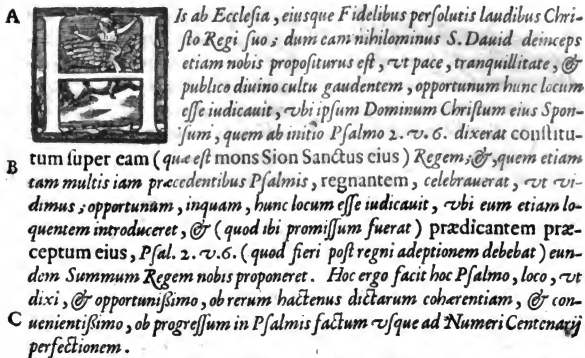 A HIs ab Ecclesia, eiusque Fidelibus persolutis laudibus Chri-
sto Regi suo; dum eam nihilominus S. Dauid deinceps
etiam nobis propositurus est, vt pace, tranquillitate, &
publico diuino cultu gaudentem, opportunum hunc locum
esse iudicauit, vbi ipsum Dominum Christum eius Spon-
sum, quem ab initio Psalmo 2. v. 6. dixerat constitu-
B tum super eam (quæ est mons Sion Sanctus eius) Regem; &, quem etiam
tam multis iam præcedentibus Psalmis, regnantem, celebrauerat, vt vi-
dimus; opportunum, inquam, hunc locum esse iudicauit, vbi eum etiam lo-
quentem introduceret, & (quod ibi promissum fuerat) prædicantem præ-
ceptum eius, Psal. 2. v. 6. (quod fieri post regni adeptionem debebat) eun-
dem Summum Regem nobis proponeret. Hoc ergo facit hoc Psalmo, loco, vt
dixi, & opportunißimo, ob rerum hactenus dictarum coherentiam, & con-
C uenientißimo, ob progressum in Psalmis factum vsque ad Numeri Centenarij
perfectionem.